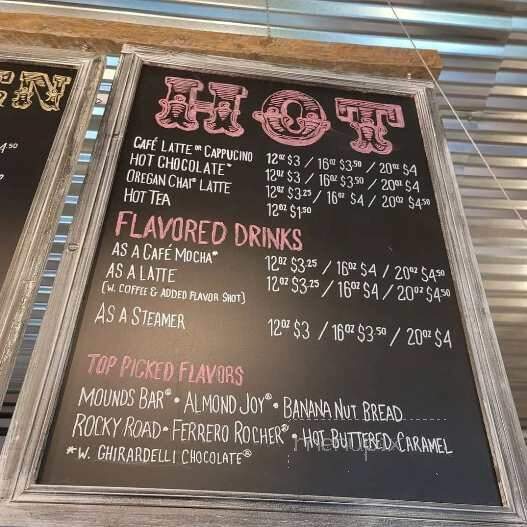 EN
4.50
HOT
CAFÉ LATTE OR CAPPUCINO 12oz $3 / 16oz $3.50 / 20oz $4
HOT CHOCOLATE* 12oz $3 / 16oz $3.50 / 20oz $4
OREGAN CHAI® LATTE 12oz $3.25 / 16oz $4 / 20oz $4.50
HOT TEA 12oz $1.50
FLAVORED DRINKS
AS A CAFÉ MOCHA* 12oz $3.25 / 16oz $4 / 20oz $4.50
AS A LATTE 12oz $3.25 / 16oz $4 / 20oz $4.50
(W. COFFEE & ADDED FLAVOR SHOT)
AS A STEAMER 12oz $3 / 16oz $3.50 / 20oz $4
TOP PICKED FLAVORS
MOUNDS BAR® • ALMOND JOY® • BANANA NUT BREAD
ROCKY ROAD • FERRERO ROCHER® • HOT BUTTERED CARAMEL
*W. GHIRARDELLI CHOCOLATE®